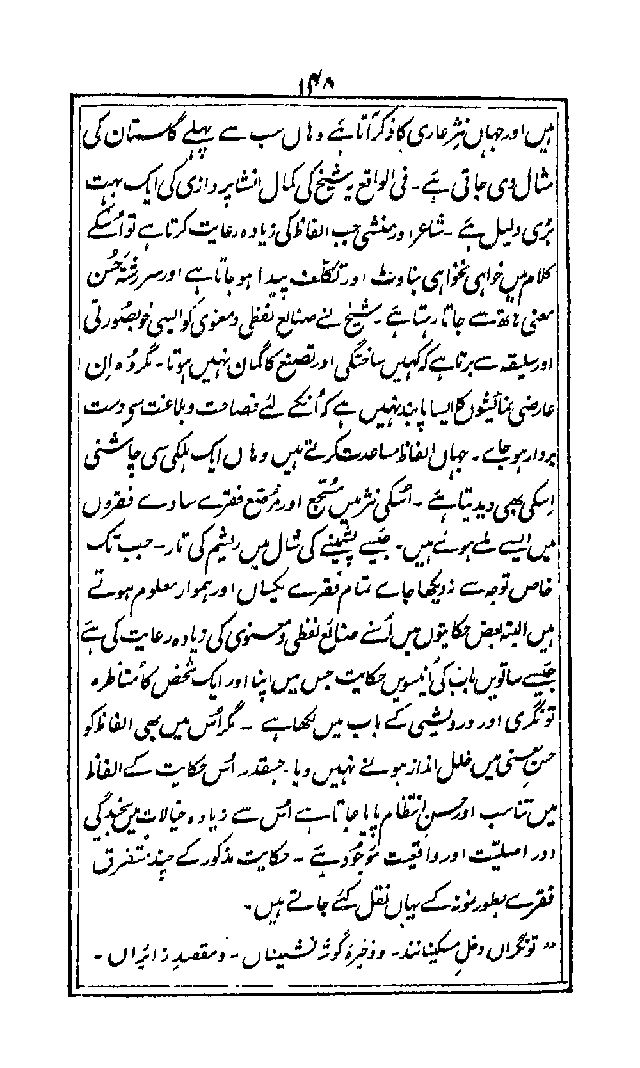 ۱۴۸
ہیں اور جہاں نثر عاری کا ذکر آتا ہے وہاں سب سے پہلے گلستان کی
مثال دی جاتی ہے۔ فی الواقع یہ شیخ کی کمال انشا پردازی کی ایک بہت
بڑی دلیل ہے۔ شاعر اور منشی جب الفاظ کی زیادہ رعایت کرتا ہے تو اُسکے
کلام میں خواہی نخواہی بناوٹ اور تکلف پیدا ہو جاتا ہے اور سررشتۂ حُسن
معنی ہاتھ سے جاتا رہتا ہے۔ شیخ نے صنایع لفظی و معنوی کو ایسی خوبصورتی
اور سلیقہ سے برتا ہے کہ کہیں ساختگی اور تصنع کا گمان نہیں ہوتا۔ مگر وُہ اِن
عارضی نمائشوں کا ایسا پابند نہیں ہے کہ اُنکے لئے فصاحت و بلاغت سے دست
بردار ہو جاے۔ جہاں الفاظ مساعدت کرتے ہیں وہاں ایک ہلکی سی چاشنی
اِسکی بھی دیدیتا ہے۔ اُسکی نثر میں مسجع اور مرصع فقرے سادے فقروں
میں ایسے ملے ہوئے ہیں۔ جیسے پشمینے کی شال میں ریشم کی تار۔ جب تک
خاص توجہ سے نہ دیکھا جاے تمام فقرے یکساں اور ہموار معلوم ہوتے
ہیں البتہ بعض حکایتوں میں اُسنے صنائع لفظی و معنوی کی زیادہ رعایت کی ہے
جیسے ساتویں باب کی اُنیسویں حکایت جس میں اپنا اور ایک شخص کا مُناظرہ
تونگری اور درویشی کے باب میں لکھا ہے۔ مگر اُس میں بھی الفاظ کو
حسن معنی میں خلل انداز ہونے نہیں دیا۔ جسقدر اُس حکایت کے الفاظ
میں تناسب اور حسن انتظام پایا جاتا ہے اُس سے زیادہ خیالات میں سنجیدگی
اور اصلیّت اور واقعیت موجود ہے۔ حکایت مذکور کے چند متفرق
فقرے بطور نمونہ کے یہاں نقل کئے جاتے ہیں۔
"تونگراں دخلِ مسکینانند۔ و ذخیرۂ گوشہ نشیناں۔ و مقصدِ زائراں۔